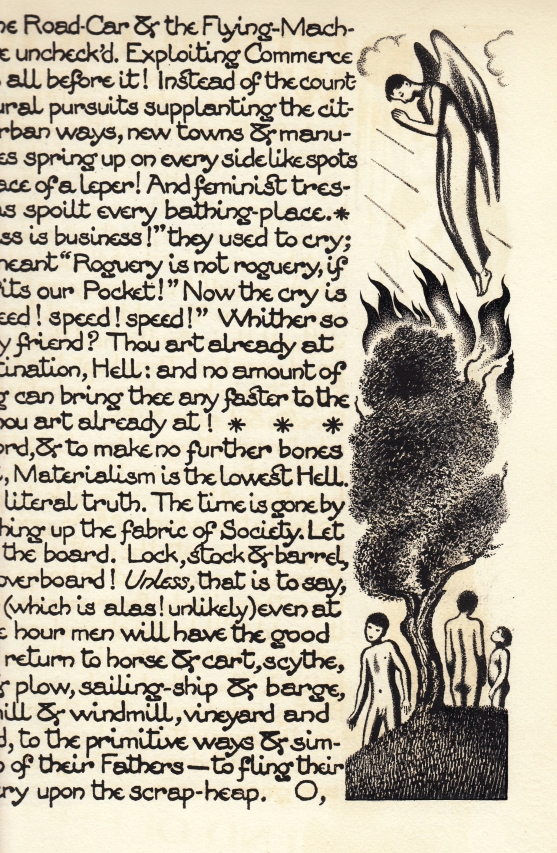 he Road-Car & the Flying-Mach-
e uncheck'd. Exploiting Commerce
all before it! Instead of the count
ural pursuits supplanting the cit-
rban ways, new towns & manu-
es spring up on every side like spots
ace of a leper! And feminist tres-
as spoilt every bathing-place.*
ss is business!" they used to cry;
meant "Roguery is not roguery, if
its our Pocket!" Now the cry is
eed! speed! speed!" Whither so
y friend? Thou art already at
tination, Hell: and no amount of
g can bring thee any faster to the
hou art already at! * * *
ord, & to make no further bones
, Materialism is the lowest Hell.
literal truth. The time is gone by
hing up the fabric of Society. Let
the board. Lock, stock & barrel,
overboard! Unless, that is to say,
(which is alas! unlikely) even at
e hour men will have the good
return to horse & cart, scythe,
& plow, sailing-ship & barge,
mill & windmill, vineyard and
d, to the primitive ways & sim-
of their Fathers—to fling their
ry upon the scrap-heap. O,